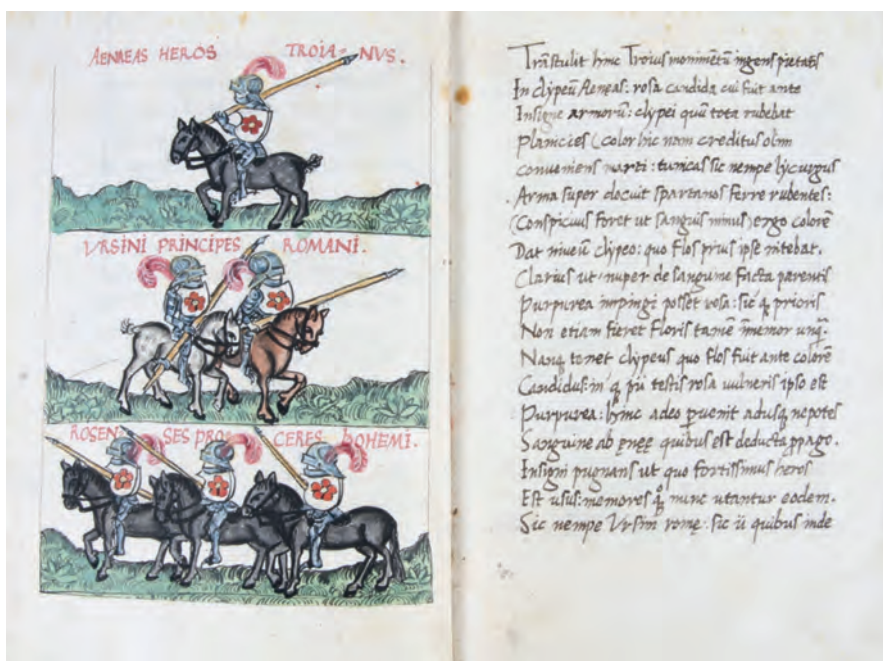 AENEAS HEROS TROIA-NVS.
VRSINI PRINCIPES ROMANI.
ROSEN SES PRO CERES BOHEMI.
Trãstulit hinc Troius monimẽtũ ingens pietatis
In clypeũ Aeneas: rosa candida cui fuit ante
Insigne armorũ: clypei quũ tota rubebat
Planicies (color hic nam creditus olim
conueniens marti: tunicas sic nempe lycurgus
Arma super docuit spartanos ferre rubentes:
(Conspicuus foret ut sanguis minus) ergo colorẽ
Dat niueũ clypeo: quo flos prius ipse nitebat.
Clarius ut nuper de sanguine facta parentis
Purpurea impingi posset rosa: sic q̃ prioris
Non etiam fieret floris tamẽ ĩmemor unq̃.
Nanq tenet clypeus quo flos fuit ante colorẽ
Candidus: in q̃ testis rosa uulneris ipso est
Purpurea: hinc adeo puenit adusq nepotes
Sanguine ab ęnęę quibus est deducta ppago.
Insigni pugnans ut quo fortissimus heros
Est usus: memores q̊ nunc utantur eodem.
Sic nempe Vrsini romę: sic ii quibus inde